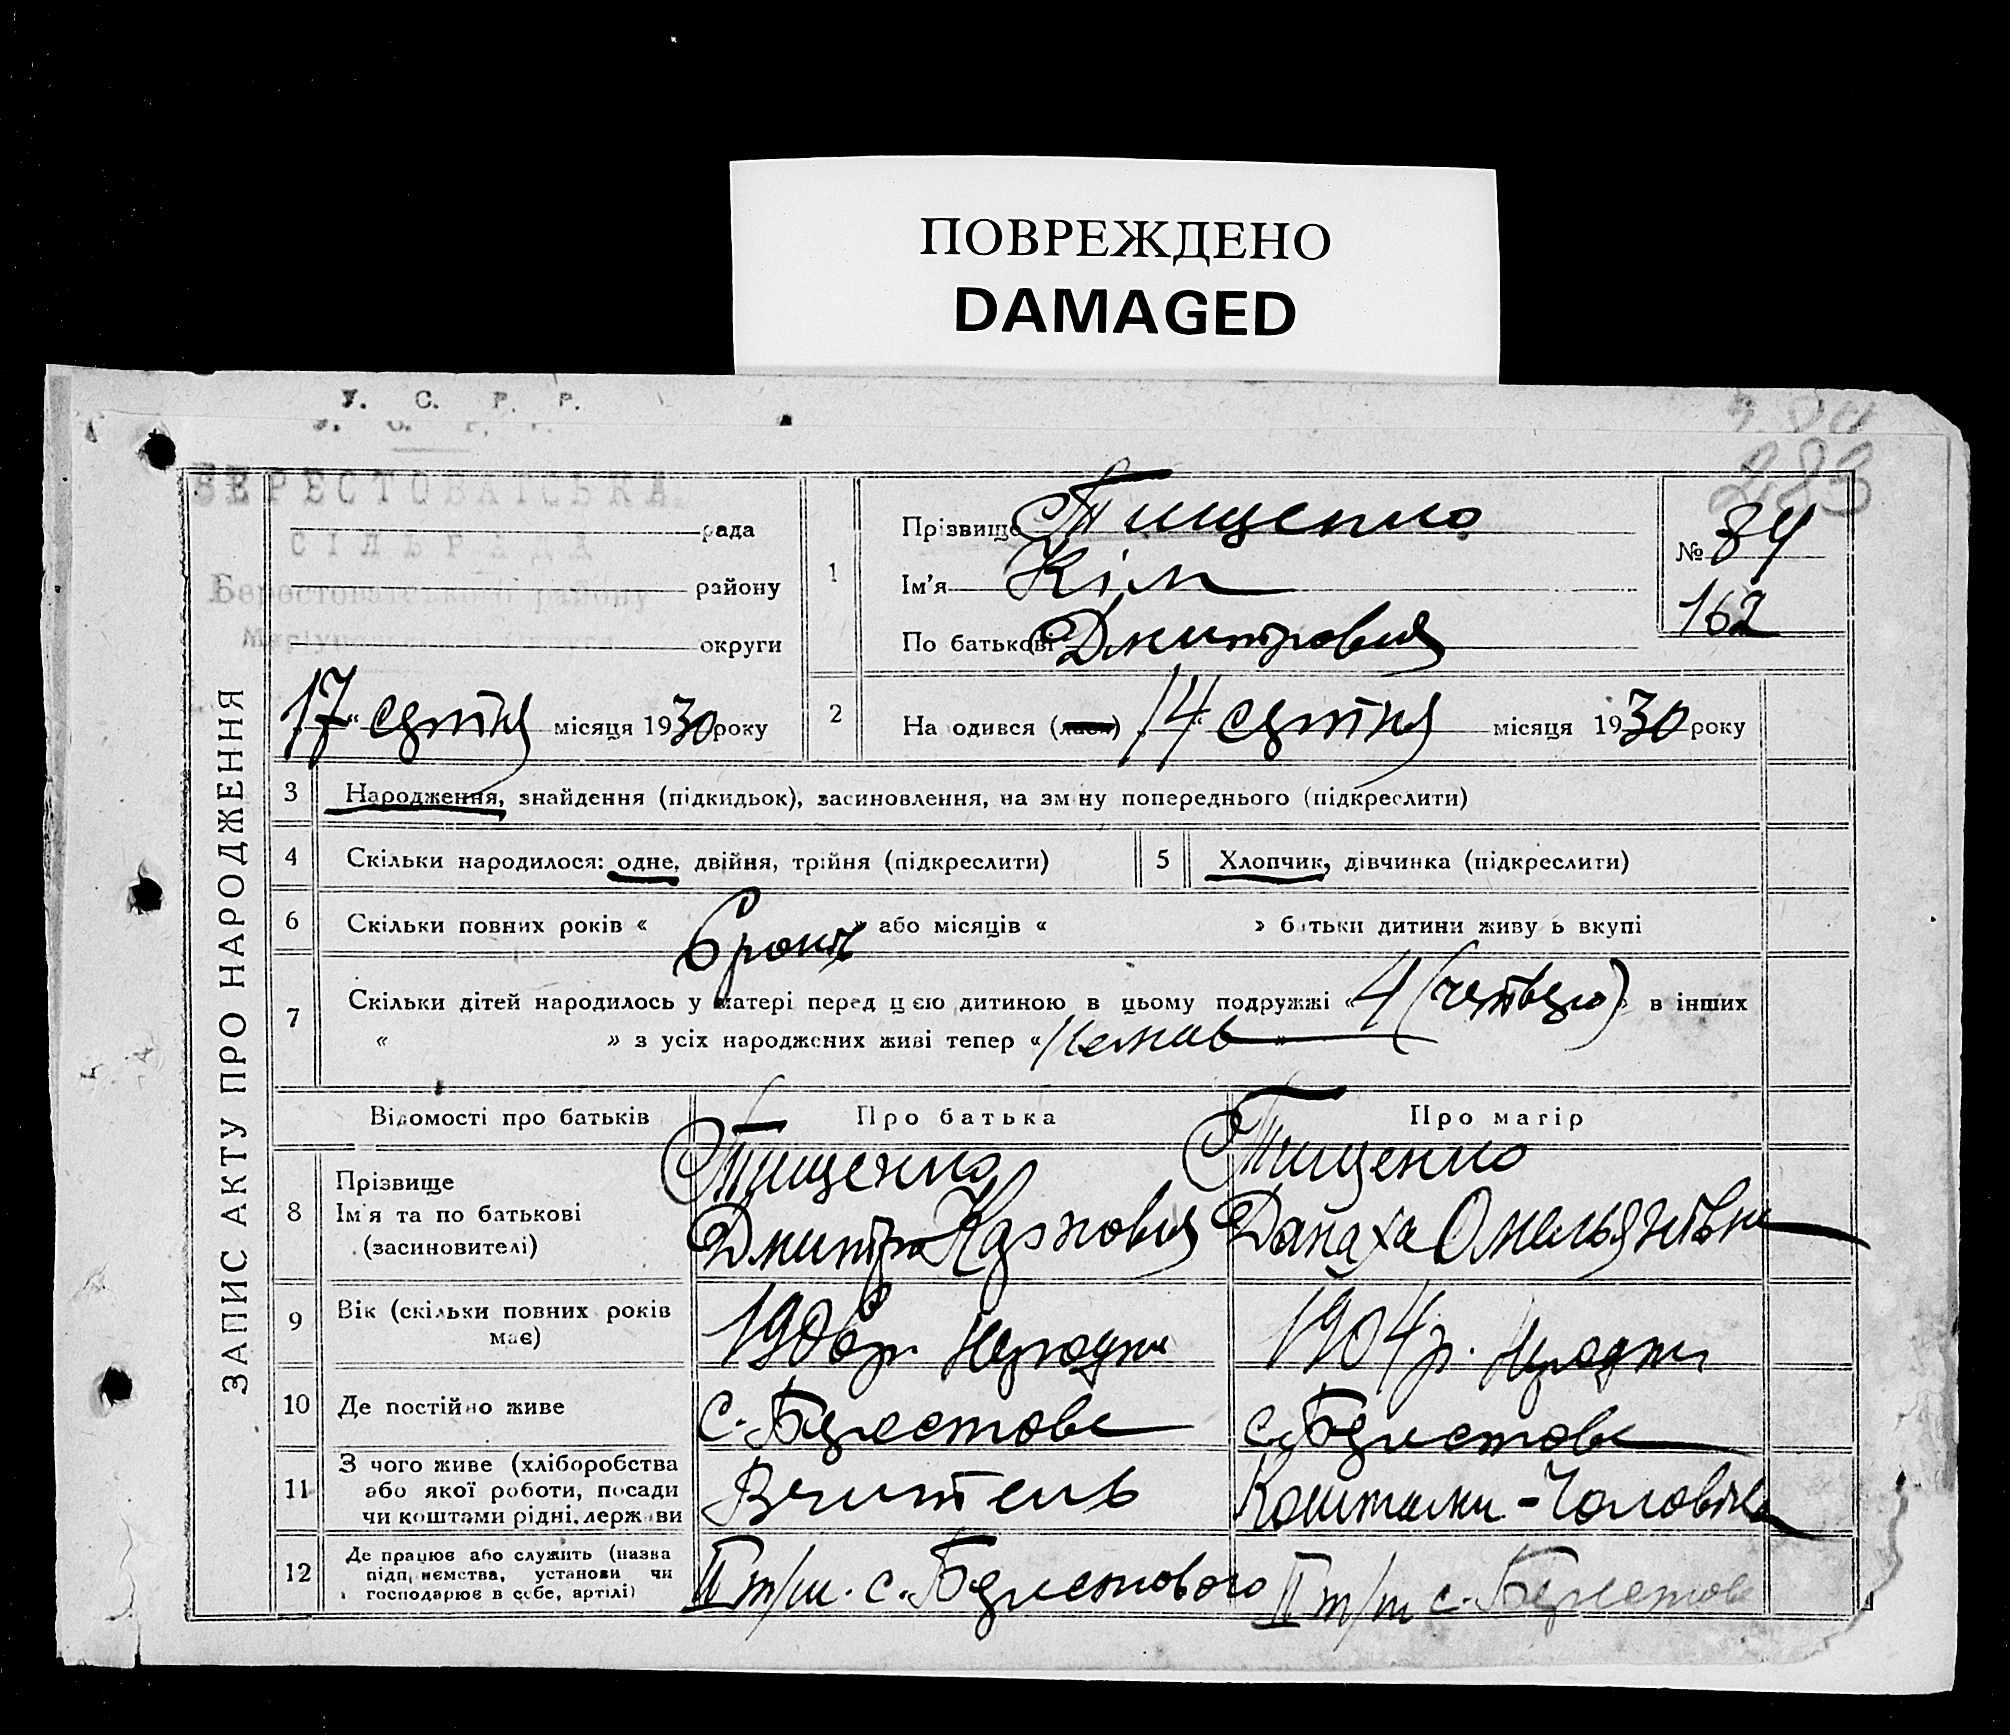 ПОВРЕЖДЕНО
DAMAGED
У. С. Р. Р.
283
БЕРЕСТОВАТСЬКА
рада
СІЛЬРАДА
Берестоватського району
району
округи
17 " серпня місяця 1930 року
ЗАПИС АКТУ ПРО НАРОДЖЕННЯ
1
Прізвище Тищенко
Ім'я Кім
По батькові Дмитрович
№ 84
162
2
На одився ( ) 14 " серпня місяця 1930 року
3 Народження, знайдення (підкидьок), засиновлення, на зміну попереднього (підкреслити)
4 Скільки народилося: одне, двійня, трійня (підкреслити)
5 Хлопчик, дівчинка (підкреслити)
6 Скільки повних років « 6 років » або місяців « » батьки дитини живу ь вкупі
7 Скільки дітей народилось у матері перед цією дитиною в цьому подружжі « 4 (четверо) » в інших
« » з усіх народжених живі тепер « »
Відомості про батьків
Про батька
Про матір
8 Прізвище
Ім'я та по батькові
(засиновителі)
Тищенко
Дмитро Карпович
Тищенко
Омельянівна
9 Вік (скільки повних років
має)
народж
1904 р. народж
10 Де постійно живе
с. Берестове
с. Берестове
11 З чого живе (хліборобства
або якої роботи, посади
чи коштами рідні, держави
Вчитель
Коштами - Чоловіка
12 Де працює або служить (назва
підп иємства, установи чи
господарює в себе, артілі)
ІІ т/ш. с. Берестового
ІІ т/ш с. Берестове